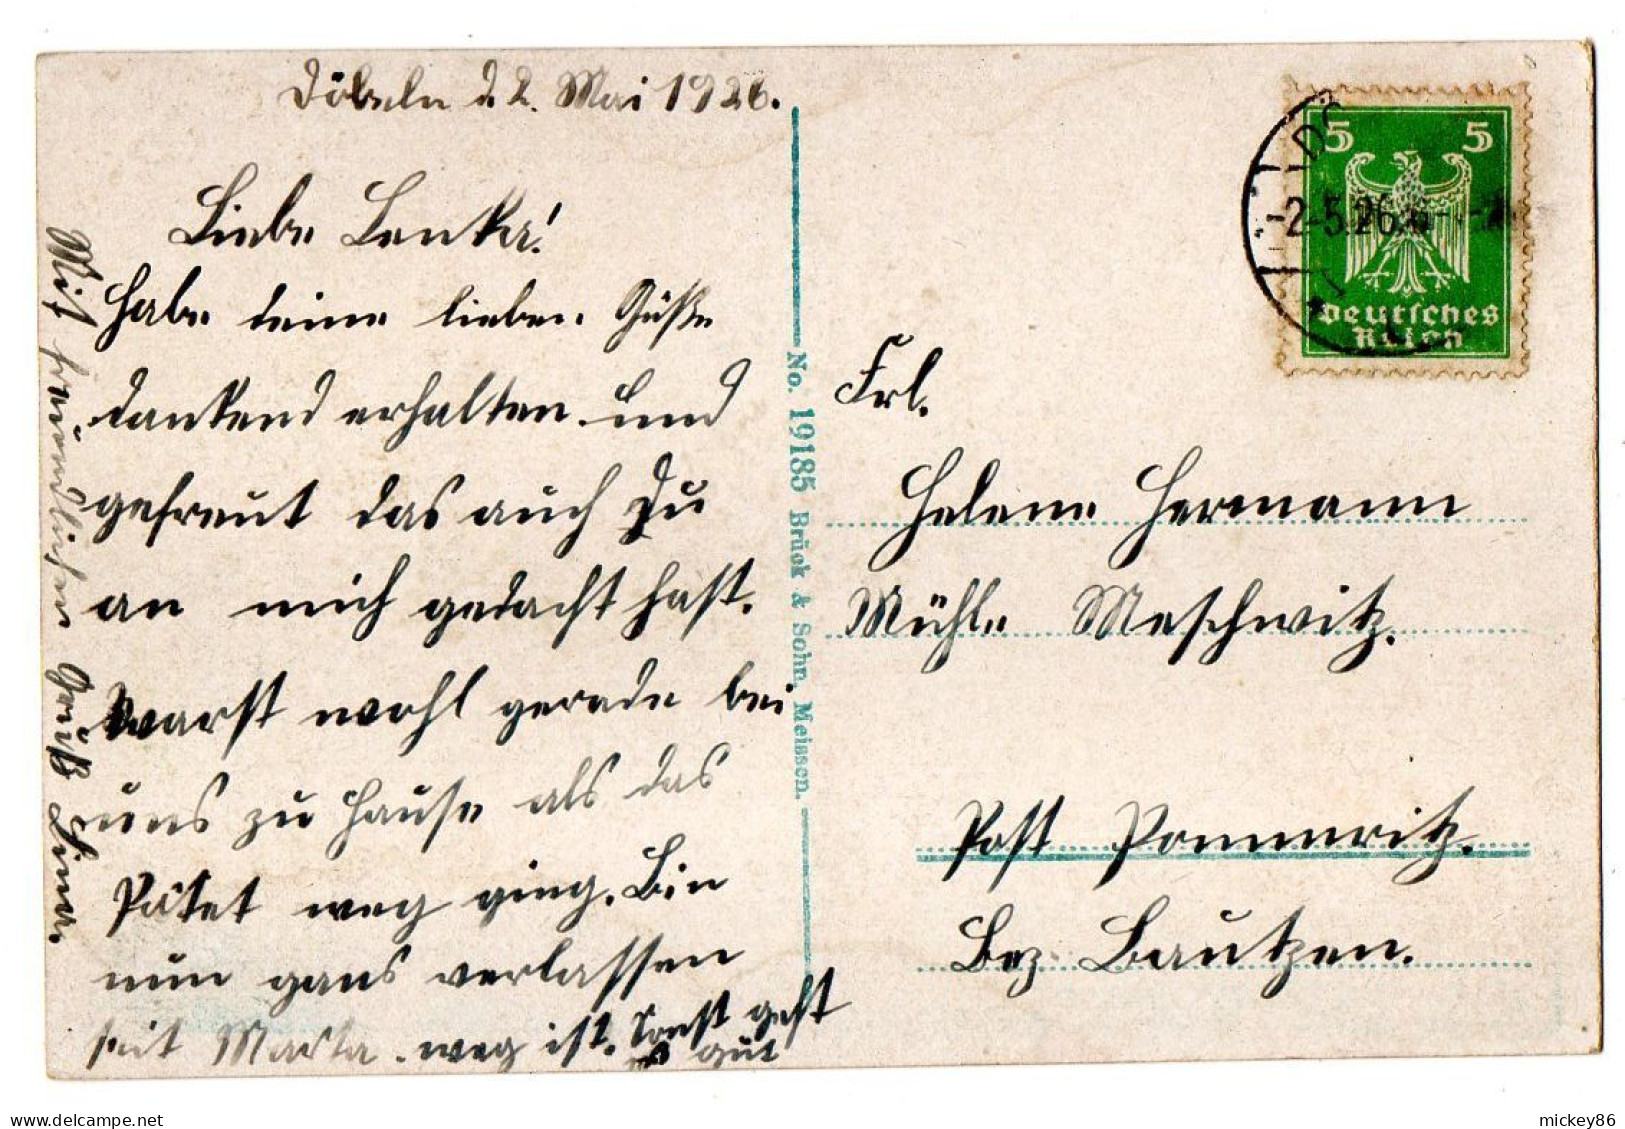 Döbeln d. 2. Mai 1926.
Liebe Lenka!
Habe deine lieben Güße
dankend erhalten und
gefreut das auch Du
an mich gedacht hast.
Warst wohl gerade bei
uns zu Hause als das
Paket weg ging. Bin
nun gans verlassen
seit Marta weg ist. Sonst geht
es gut
Mit freundlichen Gruß
No. 19185 Brück & Sohn, Meissen.
5 5
Deutsches
Reich
-2.5.26.
Frl.
Helene Hermann
Mühle Meschwitz.
Post Pommritz.
Bez. Bautzen.
delcampe.net
mickey86